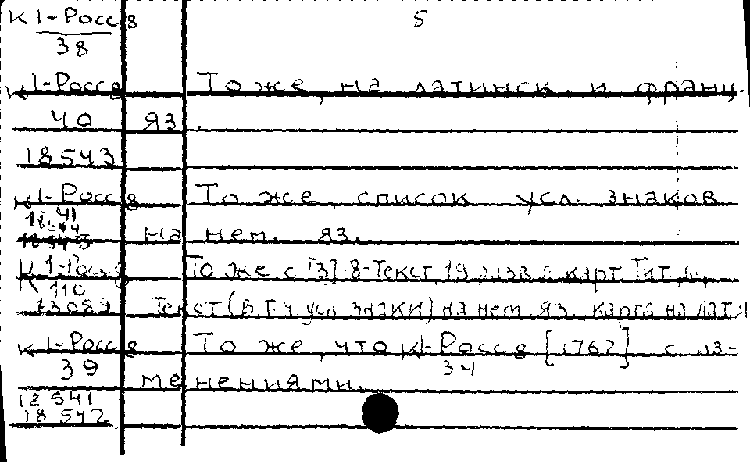 К 1-Росс 8 5
38
К 1-Росс 8 То же, на латинск. и франц.
40 яз.
18543
К 1-Росс 8 То же, список усл. знаков
41
18544 на нем. яз.
К 1-Росс 8 То же с [3] 8-Текст, 19 карт. Тит. л.,
К 110
Текст (в т.ч усл знаки) на нем. яз. карта на лат.
К 1-Росс 8 То же, что К1-Росс 8 [1762] с из-
39 34
менениями.
18541
18542